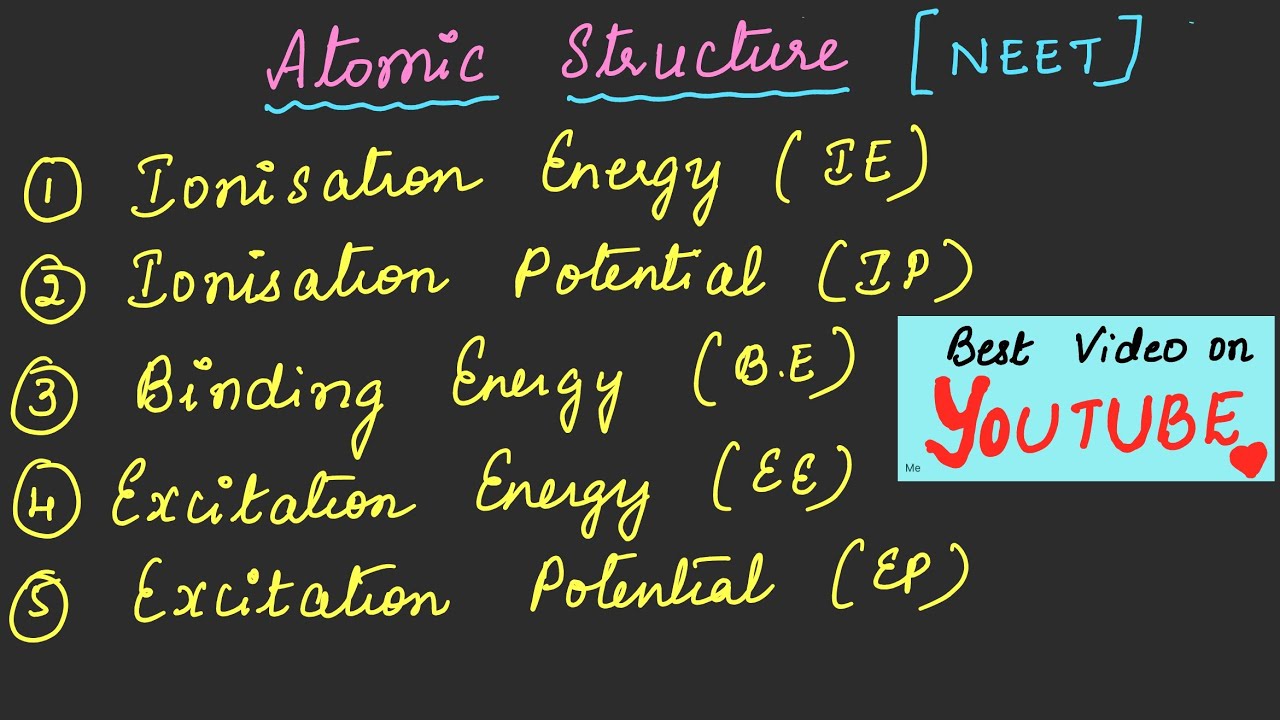 Atomic Structure [NEET]
① Ionisation Energy (IE)
② Ionisation Potential (IP)
③ Binding Energy (B.E)
④ Excitation Energy (EE)
⑤ Excitation Potential (EP)
Best Video on
YOUTUBE
Me